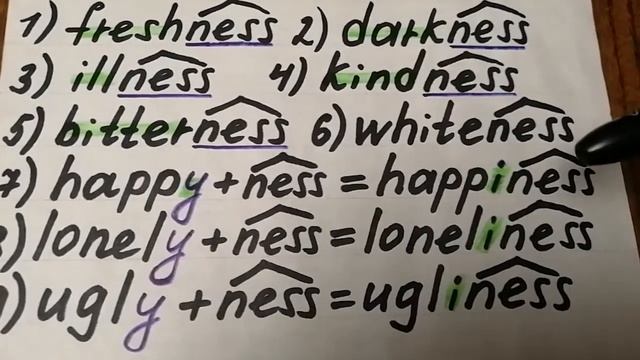 1) freshness 2) darkness
3) illness 4) kindness
5) bitterness 6) whiteness
7) happy + ness = happiness
) lonely + ness = loneliness
) ugly + ness = ugliness